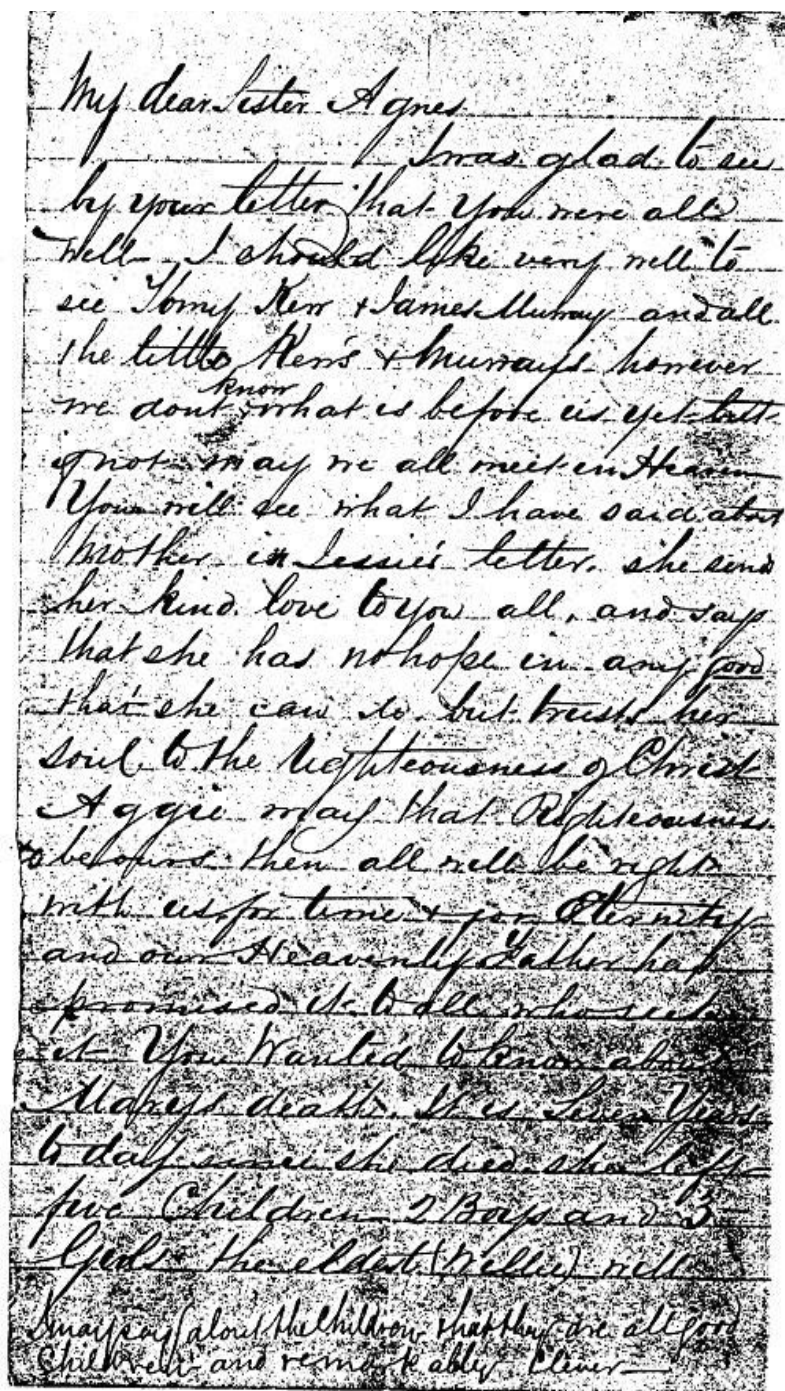 My dear Sister Agnes
I was glad to see
by your letter that you were all
well I should like very well to
see Tomy Kerr + James Murray and all
the little Kerr's + Murray's however
know
we dont what is before us yet but
if not may we all meet in Heaven
You will see what I have said about
Mother in Jessie's letter. she send
her kind love to you all, and says
that she has no hope in any good
that she can do but trusts her
soul to the Righteousness of Christ
Aggie may that Righteousness
be ours then all will be right
with us for time + for Eternity
and our Heavenly Father has
promised it to all who seek
it You Wanted to know about
Marys death. It is Seven Years
to day since she died she left
five Children 2 Boys and 3
Girls the eldest (Willie) will
I may say (about the Children that they are all good
Children and remarkably clever